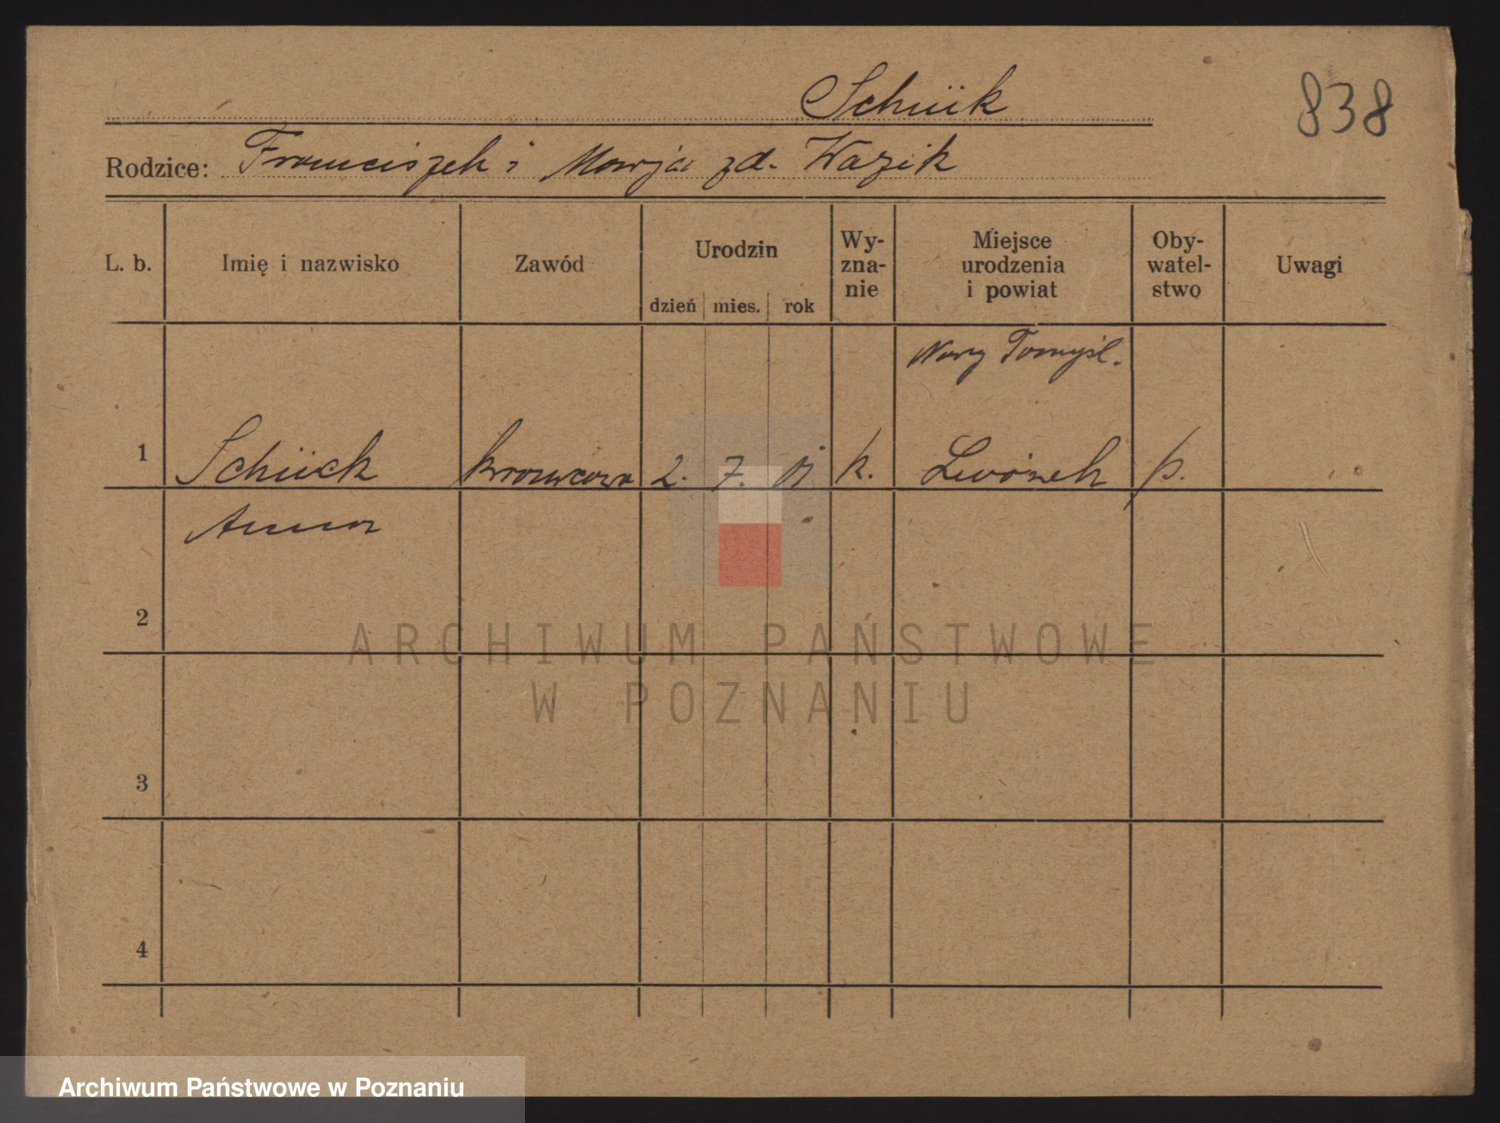 Schük
838
Rodzice: Franciszek i Marja zd. Wazik
L. b. Imię i nazwisko Zawód Urodzin dzień mies. rok Wy-zna-nie Miejsce urodzenia i powiat Oby-watel-stwo Uwagi
Nowy Tomyśl.
1 Schück krawcowa 2. 7. k. Lwówek p.
Anna
2
ARCHIWUM PAŃSTWOWE
W POZNANIU
3
4
Archiwum Państwowe w Poznaniu